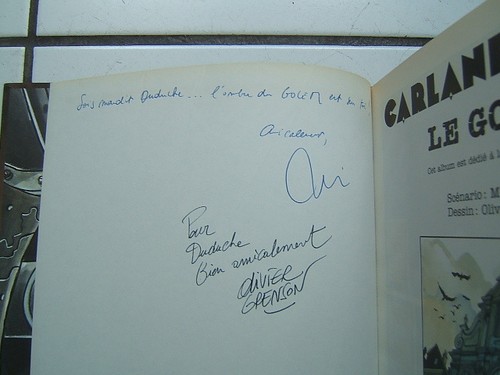 Sois maudit Duduche... l'ombre du GOLEM est sur toi
Amicalement,
Pour
Duduche
Bien amicalement
OLIVIER
GRENSON
CARLAND
LE GO
Cet album est dédié à
Scénario: M.
Dessin: Oliv